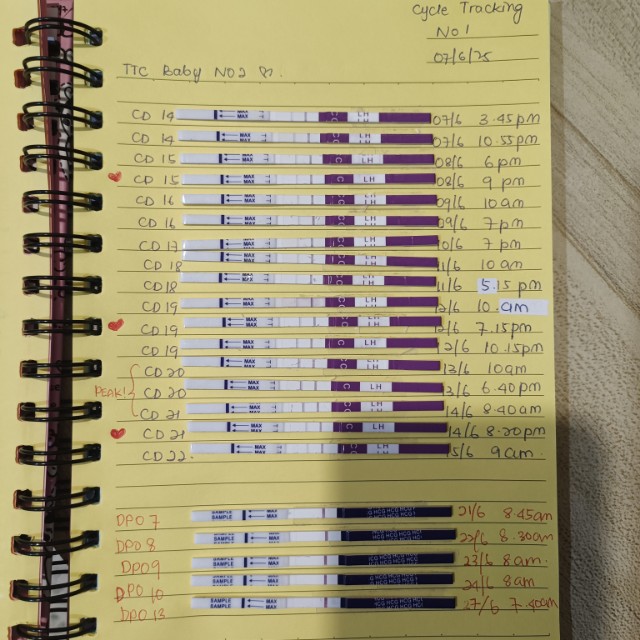 Cycle Tracking
No 1
07/6/25
TTC Baby NO2
CD 14 MAX LH 07/6 3.45pm
CD 14 MAX LH 07/6 10.55pm
CD 15 MAX C LH 08/6 6pm
CD 15 MAX C LH 08/6 9 pm
CD 16 MAX LH 09/6 10am
CD 16 MAX LH 09/6 7pm
CD 17 MAX LH 10/6 7 pm
CD 18 MAX LH 11/6 10 am
CD 18 MAX LH 11/6 5.15 pm
CD 19 MAX LH 12/6 10.am
CD 19 MAX LH 12/6 7.15pm
CD 19 MAX C LH 12/6 10.15pm
CD 20 MAX LH 13/6 10am
PEAK!
CD 20 MAX C LH 13/6 6.40pm
CD 21 MAX LH 14/6 8.40am
CD 21 MAX C LH 14/6 8.20pm
CD 22 MAX LH 15/6 9am
DPO 7 SAMPLE MAX HCG HCG HCG 21/6 8.45am
DPO 8 SAMPLE MAX HCG HCG HCG 22/6 8.30am
DPO 9 SAMPLE MAX HCG HCG HCG 23/6 8am
DPO 10 SAMPLE MAX HCG HCG HCG 24/6 8am
DPO 13 SAMPLE MAX HCG HCG HCG 27/6 7.40am